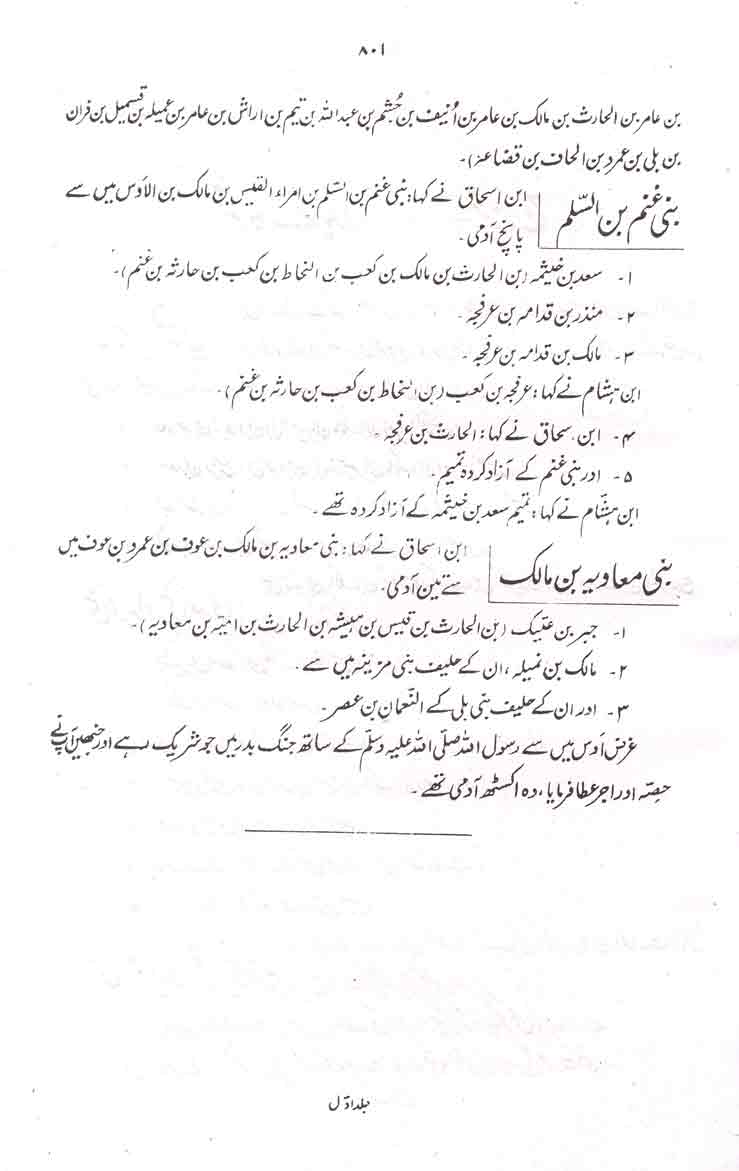 ۸۰۱
بن عامر بن الحارث بن مالک بن عامر بن اُنیف بن جُشم بن عبداللہ بن تیم بن اراش بن عامر بن عمیلہ بن قسمیل بن فران
بن بلی بن عمرو بن الحاف بن قضاعہ)۔
بنی غنم بن السّلم
ابن اسحاق نے کہا: بنی غنم بن السّلم بن امراء القیس بن مالک بن الأوس میں سے
پانچ آدمی۔
۱۔ سعد بن خیثمہ (بن الحارث بن مالک بن کعب بن النحاط بن کعب بن حارثہ بن غنم)۔
۲۔ منذر بن قدامہ بن عرفجہ۔
۳۔ مالک بن قدامہ بن عرفجہ۔
ابن ہشام نے کہا: عرفجہ بن کعب (بن النحاط بن کعب بن حارثہ بن غنم)۔
۴۔ ابن اسحاق نے کہا: الحارث بن عرفجہ۔
۵۔ اور بنی غنم کے آزاد کردہ تمیم۔
ابن ہشام نے کہا: تمیم سعد بن خیثمہ کے آزاد کردہ تھے۔
بنی معاویہ بن مالک
ابن اسحاق نے کہا: بنی معاویہ بن مالک بن عوف بن عمرو بن عوف میں
سے تین آدمی۔
۱۔ جبر بن عتیک (بن الحارث بن قیس بن ہیشہ بن الحارث بن امیّہ بن معاویہ)۔
۲۔ مالک بن نمیلہ، ان کے حلیف بنی مزینہ میں سے۔
۳۔ اور ان کے حلیف بنی بلی کے النّعمان بن عصر۔
غرض اوس میں سے رسول اللہ صلّی اللہ علیہ وسلّم کے ساتھ جنگ بدر میں جو شریک رہے اور جنھیں آپ نے
حصّہ اور اجر عطا فرمایا، وہ اکسٹھ آدمی تھے۔
جلد اوّل